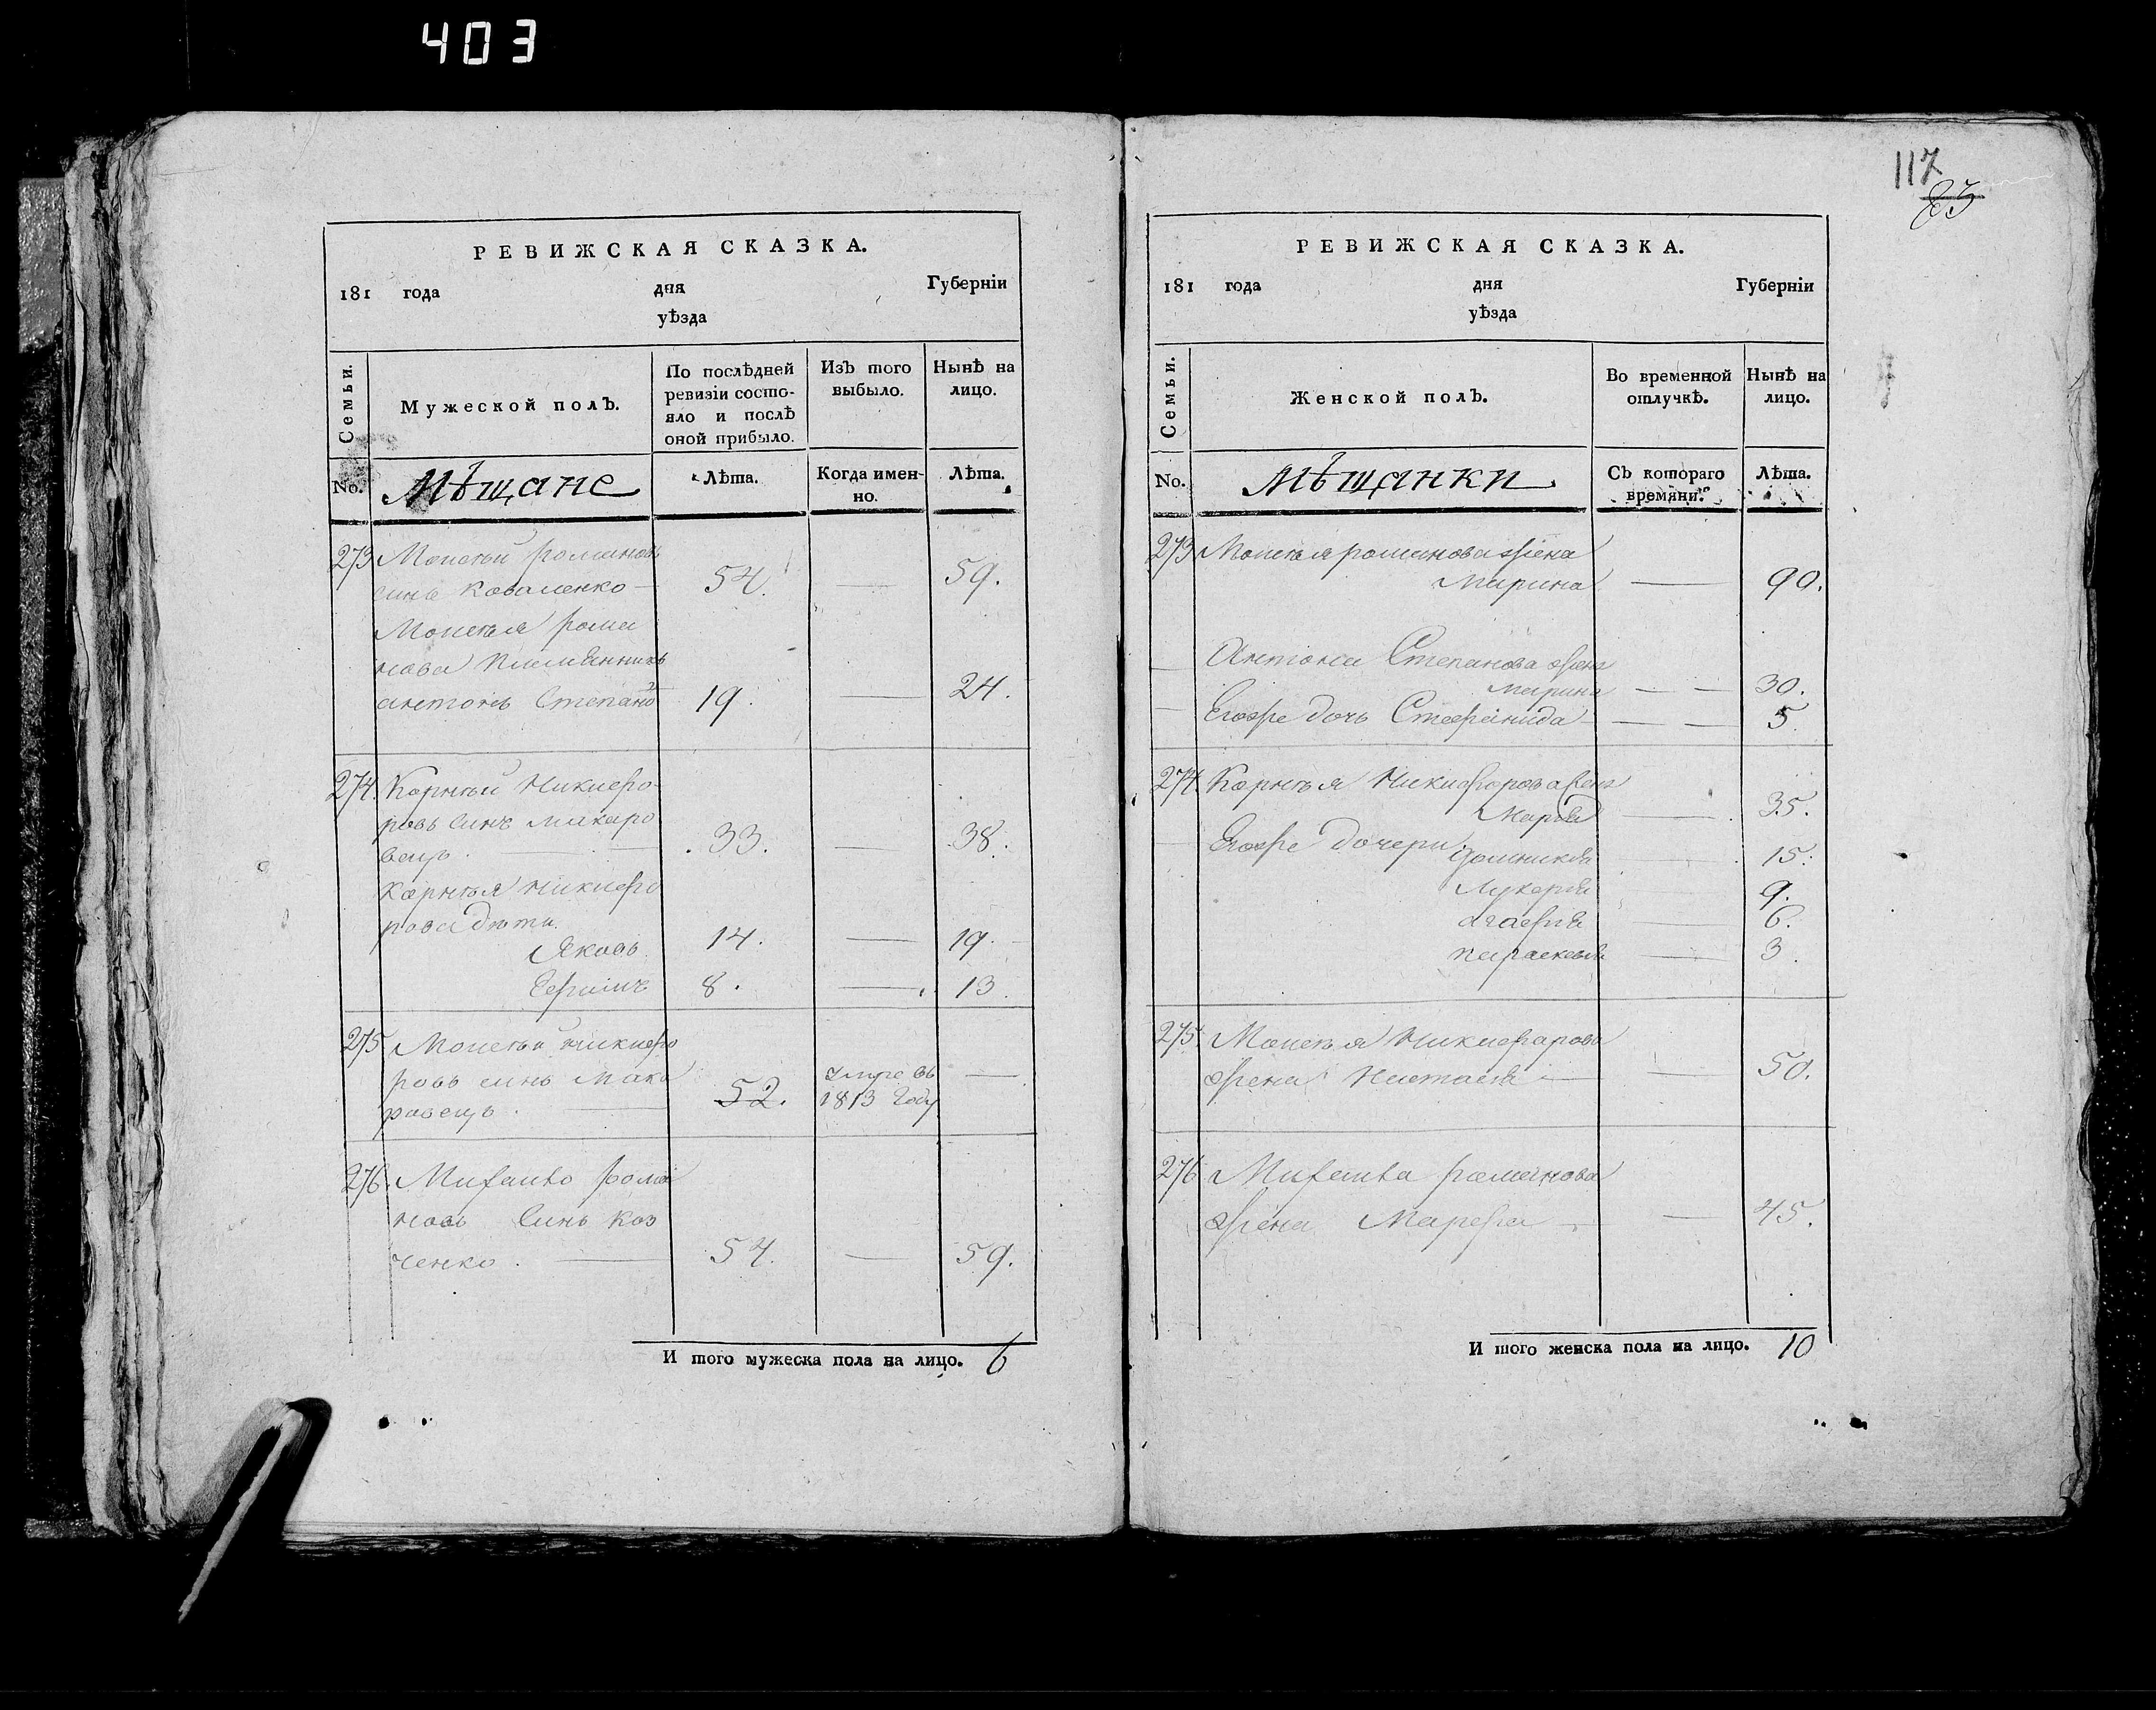 403
117
83
РЕВИЖСКАЯ СКАЗКА.
181 года дня Губернїи
уѣзда
Семьи.
Мужеской полЪ.
По послѣдней ревизїи состояло и послѣ оной прибыло.
ИзЪ того выбыло.
Нынѣ на лицо.
No.
Мѣщане
Лѣта.
Когда именно.
Лѣта.
273 Моисѣй романовъ
синъ Коваленко — 54. — 59.
Моисѣя рома
нова племѣнникъ
антонъ Степано 19. — 24.
274. Корнѣй Никифо-
ровъ Синъ макаро
вецъ. — 33. — 38.
Корнѣя никифо
рова дѣти.
Яковъ 14. — 19.
Ефимъ 8. — 13.
275 Моисѣй никифо
ровъ синъ Мака
ровецъ. — 52. умре въ 1813 году —
276. Михайло рома
новъ Синъ Коз
ченко. — 54. — 59.
И того мужеска пола на лицо. 6
РЕВИЖСКАЯ СКАЗКА.
181 года дня Губернїи
уѣзда
Семьи.
Женской полЪ.
Во временной отлучкѣ.
Нынѣ на лицо.
No.
мѣщанки
СЪ котораго времяни.
Лѣта.
273 Моисѣя романова жена
Марина — 90.
Антона Степанова жена
марина — — 30.
Егоже дочь Стефанида — — 5.
274 Корнѣя Никифорова жена
Марія — 35.
Егоже дочери Домникія — 15.
Лукерія — 9.
агафія — 6.
параскевія — 3.
275. Моисѣя Никифарова
жена Настасія — — 50.
276 Михайла романова
жена Марфа — — 45.
И того женска пола на лицо. 10